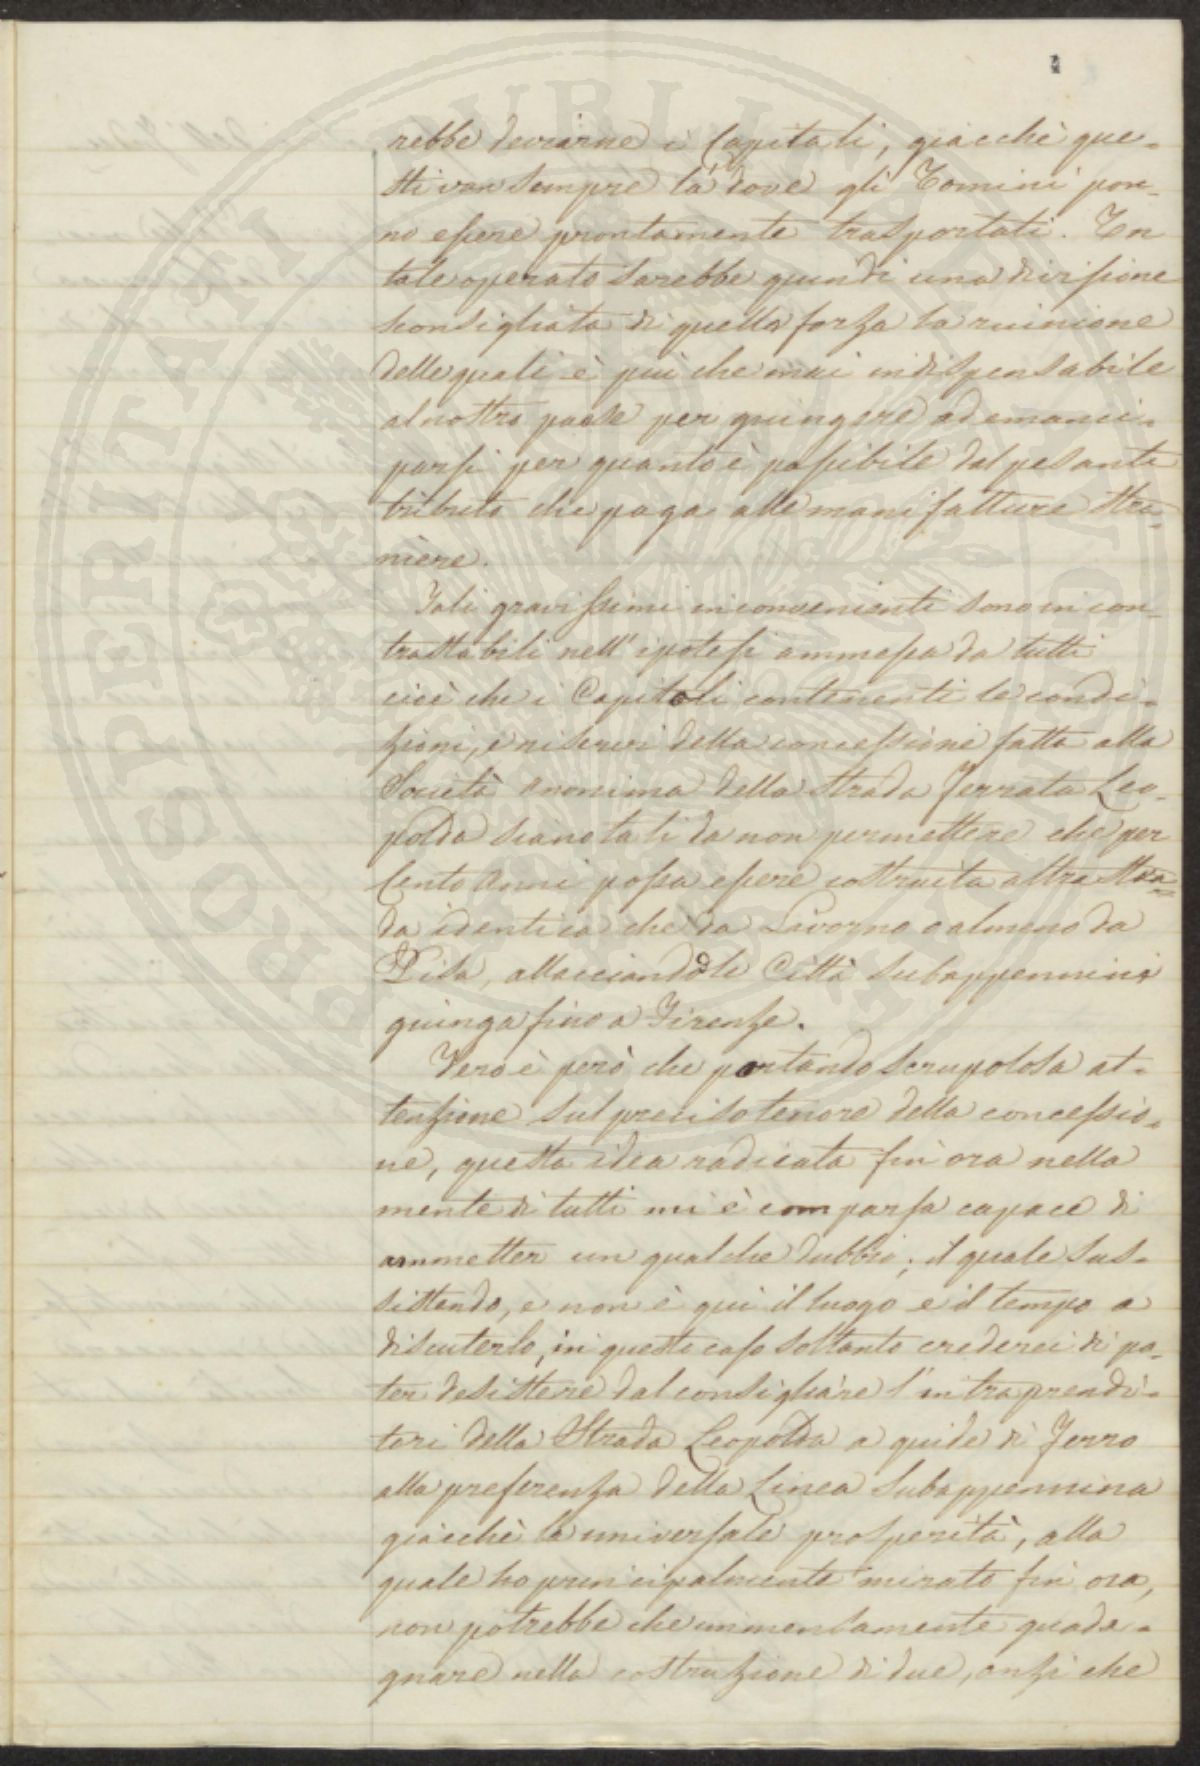 rebbe deviarne i Capitali, giacchè que-
sti van sempre là dove gli Uomini pon-
no essere prontamente trasportati. Un
tale operato sarebbe quindi una divisione
sconsigliata di quella forza la riunione
delle quali è piu che mai indispensabile
al nostro paese per giungere ad emanci-
parsi per quanto è possibile dal pesante
tributo che paga alle manifatture stra-
niere.
Tali gravissimi inconvenienti sono incon-
trastabili nell'ipotesi ammessa da tutti
cioè che i Capitoli contenenti le condi-
zioni, e riservi della concessione fatta alla
Società anonima della strada Ferrata Leo-
polda siano tali da non permettere che per
Cento Anni possa essere costruita altra stra=
da identica che da Livorno o almeno da
Pisa, allacciando le Città subappennini
giunga fino a Firenze.
Vero è però che portando scrupolosa at-
tenzione sul preciso tenore della concessio-
ne, questa idea radicata fin ora nella
mente di tutti mi è comparsa capace di
ammetter un qualche dubbio; il quale sus-
sistendo, e non è qui il luogo e il tempo a
discuterlo, in questo caso soltanto crederei di po-
ter desistere dal consigliare l'intraprendi-
tori della Strada Leopolda a guide di Ferro
alla preferenza della Linea Subappennina
giacchè la universale prosperità, alla
quale ho principalmente mirato fin ora,
non potrebbe che immensamente guada-
gnare nella costruzione di due, anzi che
PROSPERITATI PUBLICAE